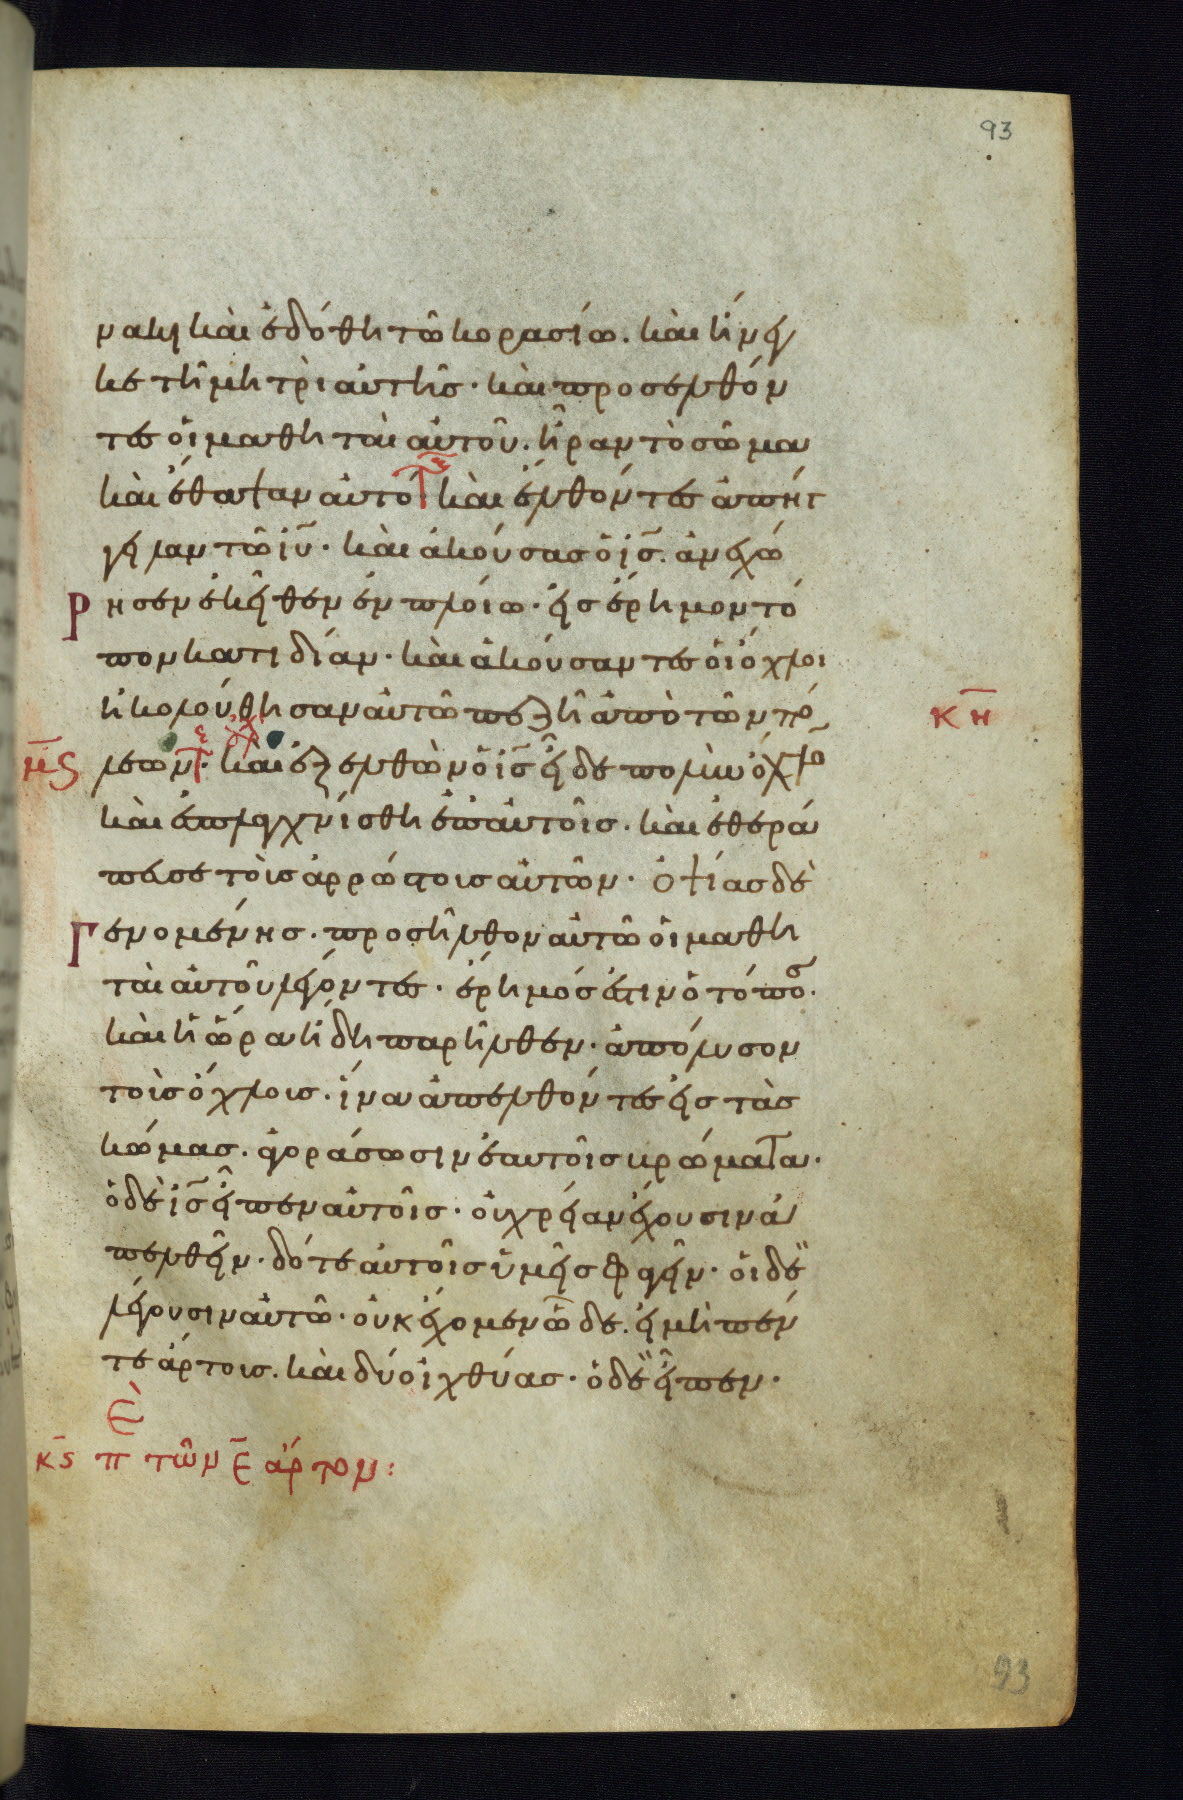 93
νακι καὶ ἐδόθη τῶ κορασίω. καὶ ἤνεγ
κε τῆ μητρὶ αὐτῆς· καὶ προσελθόν
τες οἱ μαθηταὶ αὐτοῦ. ἦραν τὸ σῶμα
καὶ ἔθαψαν αὐτό· καὶ ἐλθόντες ἀπήγ
γειλαν τῶ ἰῦ· καὶ ἀκούσας ὁ ἰς̄. ἀνεχώ
ρησεν ἐκεῖθεν ἐν πλοίω· εἰς ἔρημον τό
πον κατιδίαν· καὶ ἀκούσαντες οἱ ὄχλοι
ἠκολούθησαν αὐτῶ πεζῆ ἀπὸ τῶν πό κ̄η
μ̄ς λεων· καὶ ἐξελθὼν ὁ ἰς̄ εἶδε πολὺν ὄχλον
καὶ ἐσπλαγχνίσθη ἐπ αὐτοῖς. καὶ ἐθερά
πευσε τοὺς ἀρρώστους αὐτῶν· ὀψίας δὲ
γενομένης. προσῆλθον αὐτῶ οἱ μαθη
ταὶ αὐτοῦ λέγοντες· ἔρημός ἐστιν ὁ τόπος.
καὶ ἡ ὥρα ἤδη παρῆλθεν· ἀπόλυσον
τοὺς ὄχλους. ἵνα ἀπελθόντες εἰς τὰς
κώμας. ἀγοράσωσιν ἑαυτοῖς βρώματα.
ὁ δὲ ἰς̄ εἶπεν αὐτοῖς· οὐ χρείαν ἔχουσιν ἀ
πελθεῖν· δότε αὐτοῖς ὑμεῖς φαγεῖν· οἱ δὲ
λέγουσιν αὐτῶ· οὐκ ἔχομεν ὧδε. εἰ μὴ πέν
τε ἄρτους. καὶ δύο ἰχθύας· ὁ δὲ εἶπεν·
κ̄ς πε τῶν ε̄ ἄρτον:
93